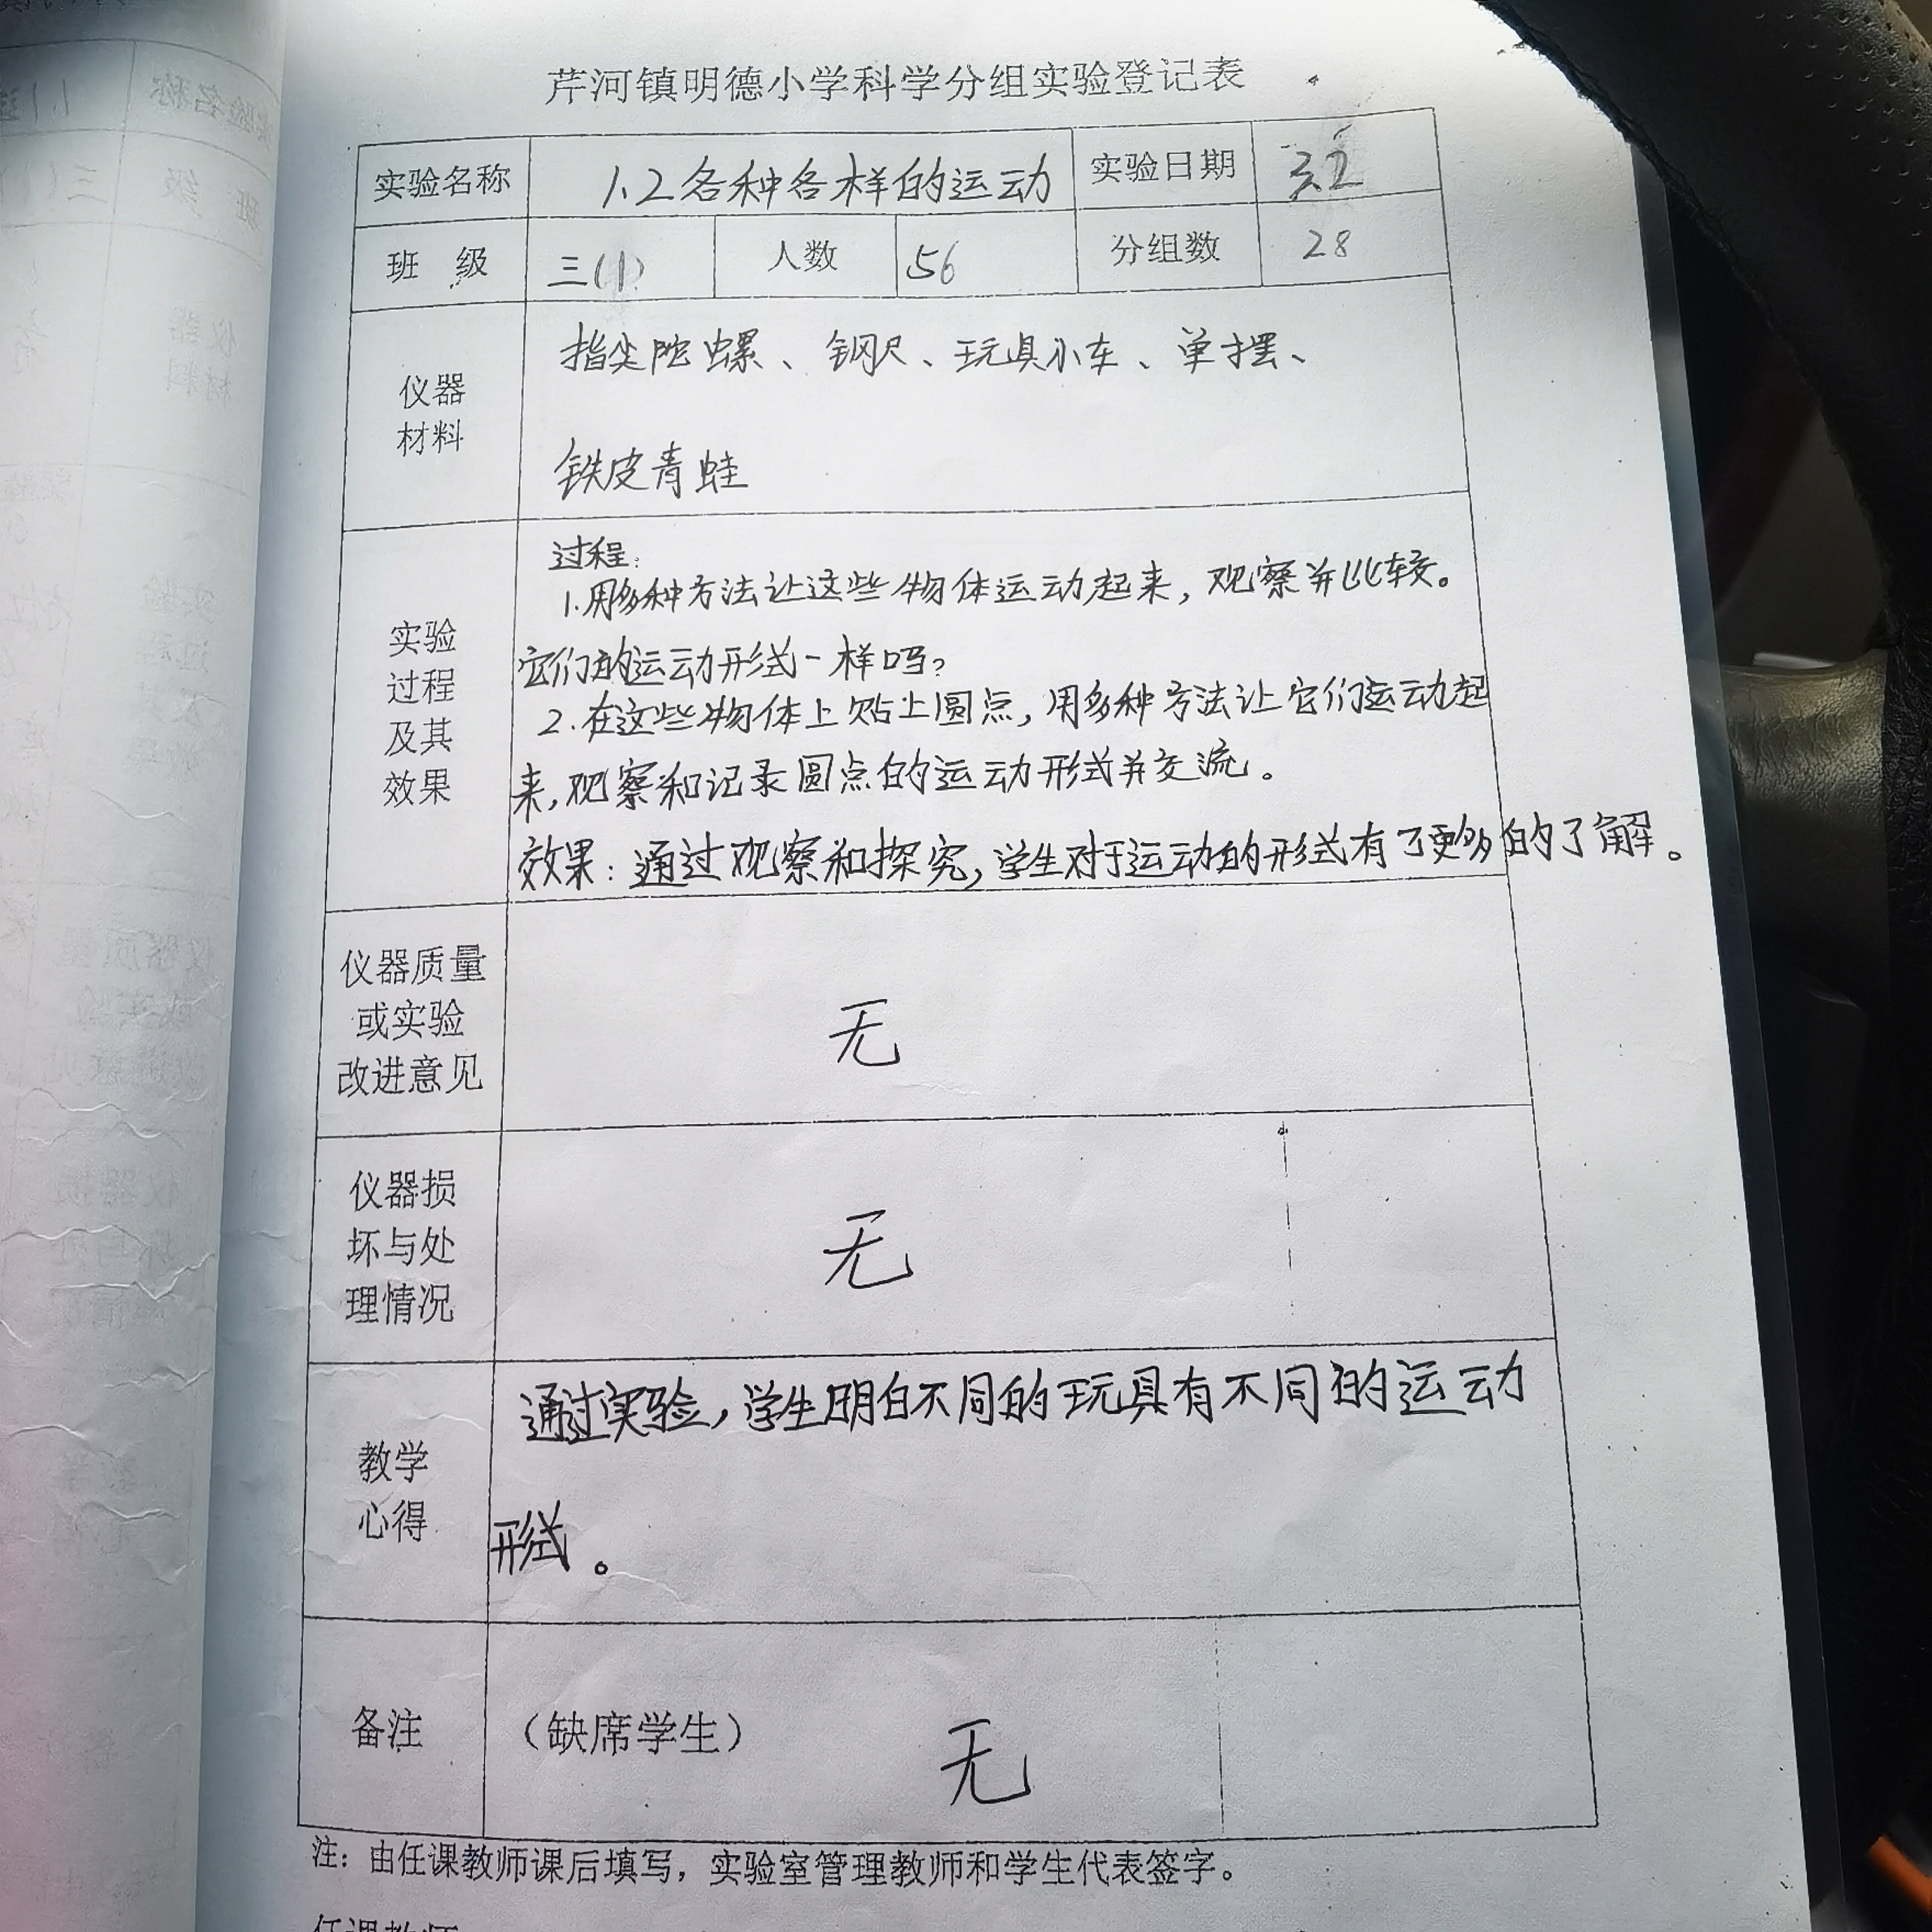 芹河镇明德小学科学分组实验登记表
实验名称 1.2各种各样的运动 实验日期 3.2
班 级 三(1) 人数 56 分组数 28
仪器
材料
指尖陀螺、钢尺、玩具小车、单摆、
铁皮青蛙
实验
过程
及其
效果
过程:
1.用多种方法让这些物体运动起来,观察并比较。
它们的运动形式一样吗?
2.在这些物体上贴上圆点,用多种方法让它们运动起
来,观察和记录圆点的运动形式并交流。
效果:通过观察和探究,学生对于运动的形式有了更多的了解。
仪器质量
或实验
改进意见
无
仪器损
坏与处
理情况
无
教学
心得
通过实验,学生明白不同的玩具有不同的运动
形式。
备注 (缺席学生) 无
注:由任课教师课后填写,实验室管理教师和学生代表签字。
任课教师